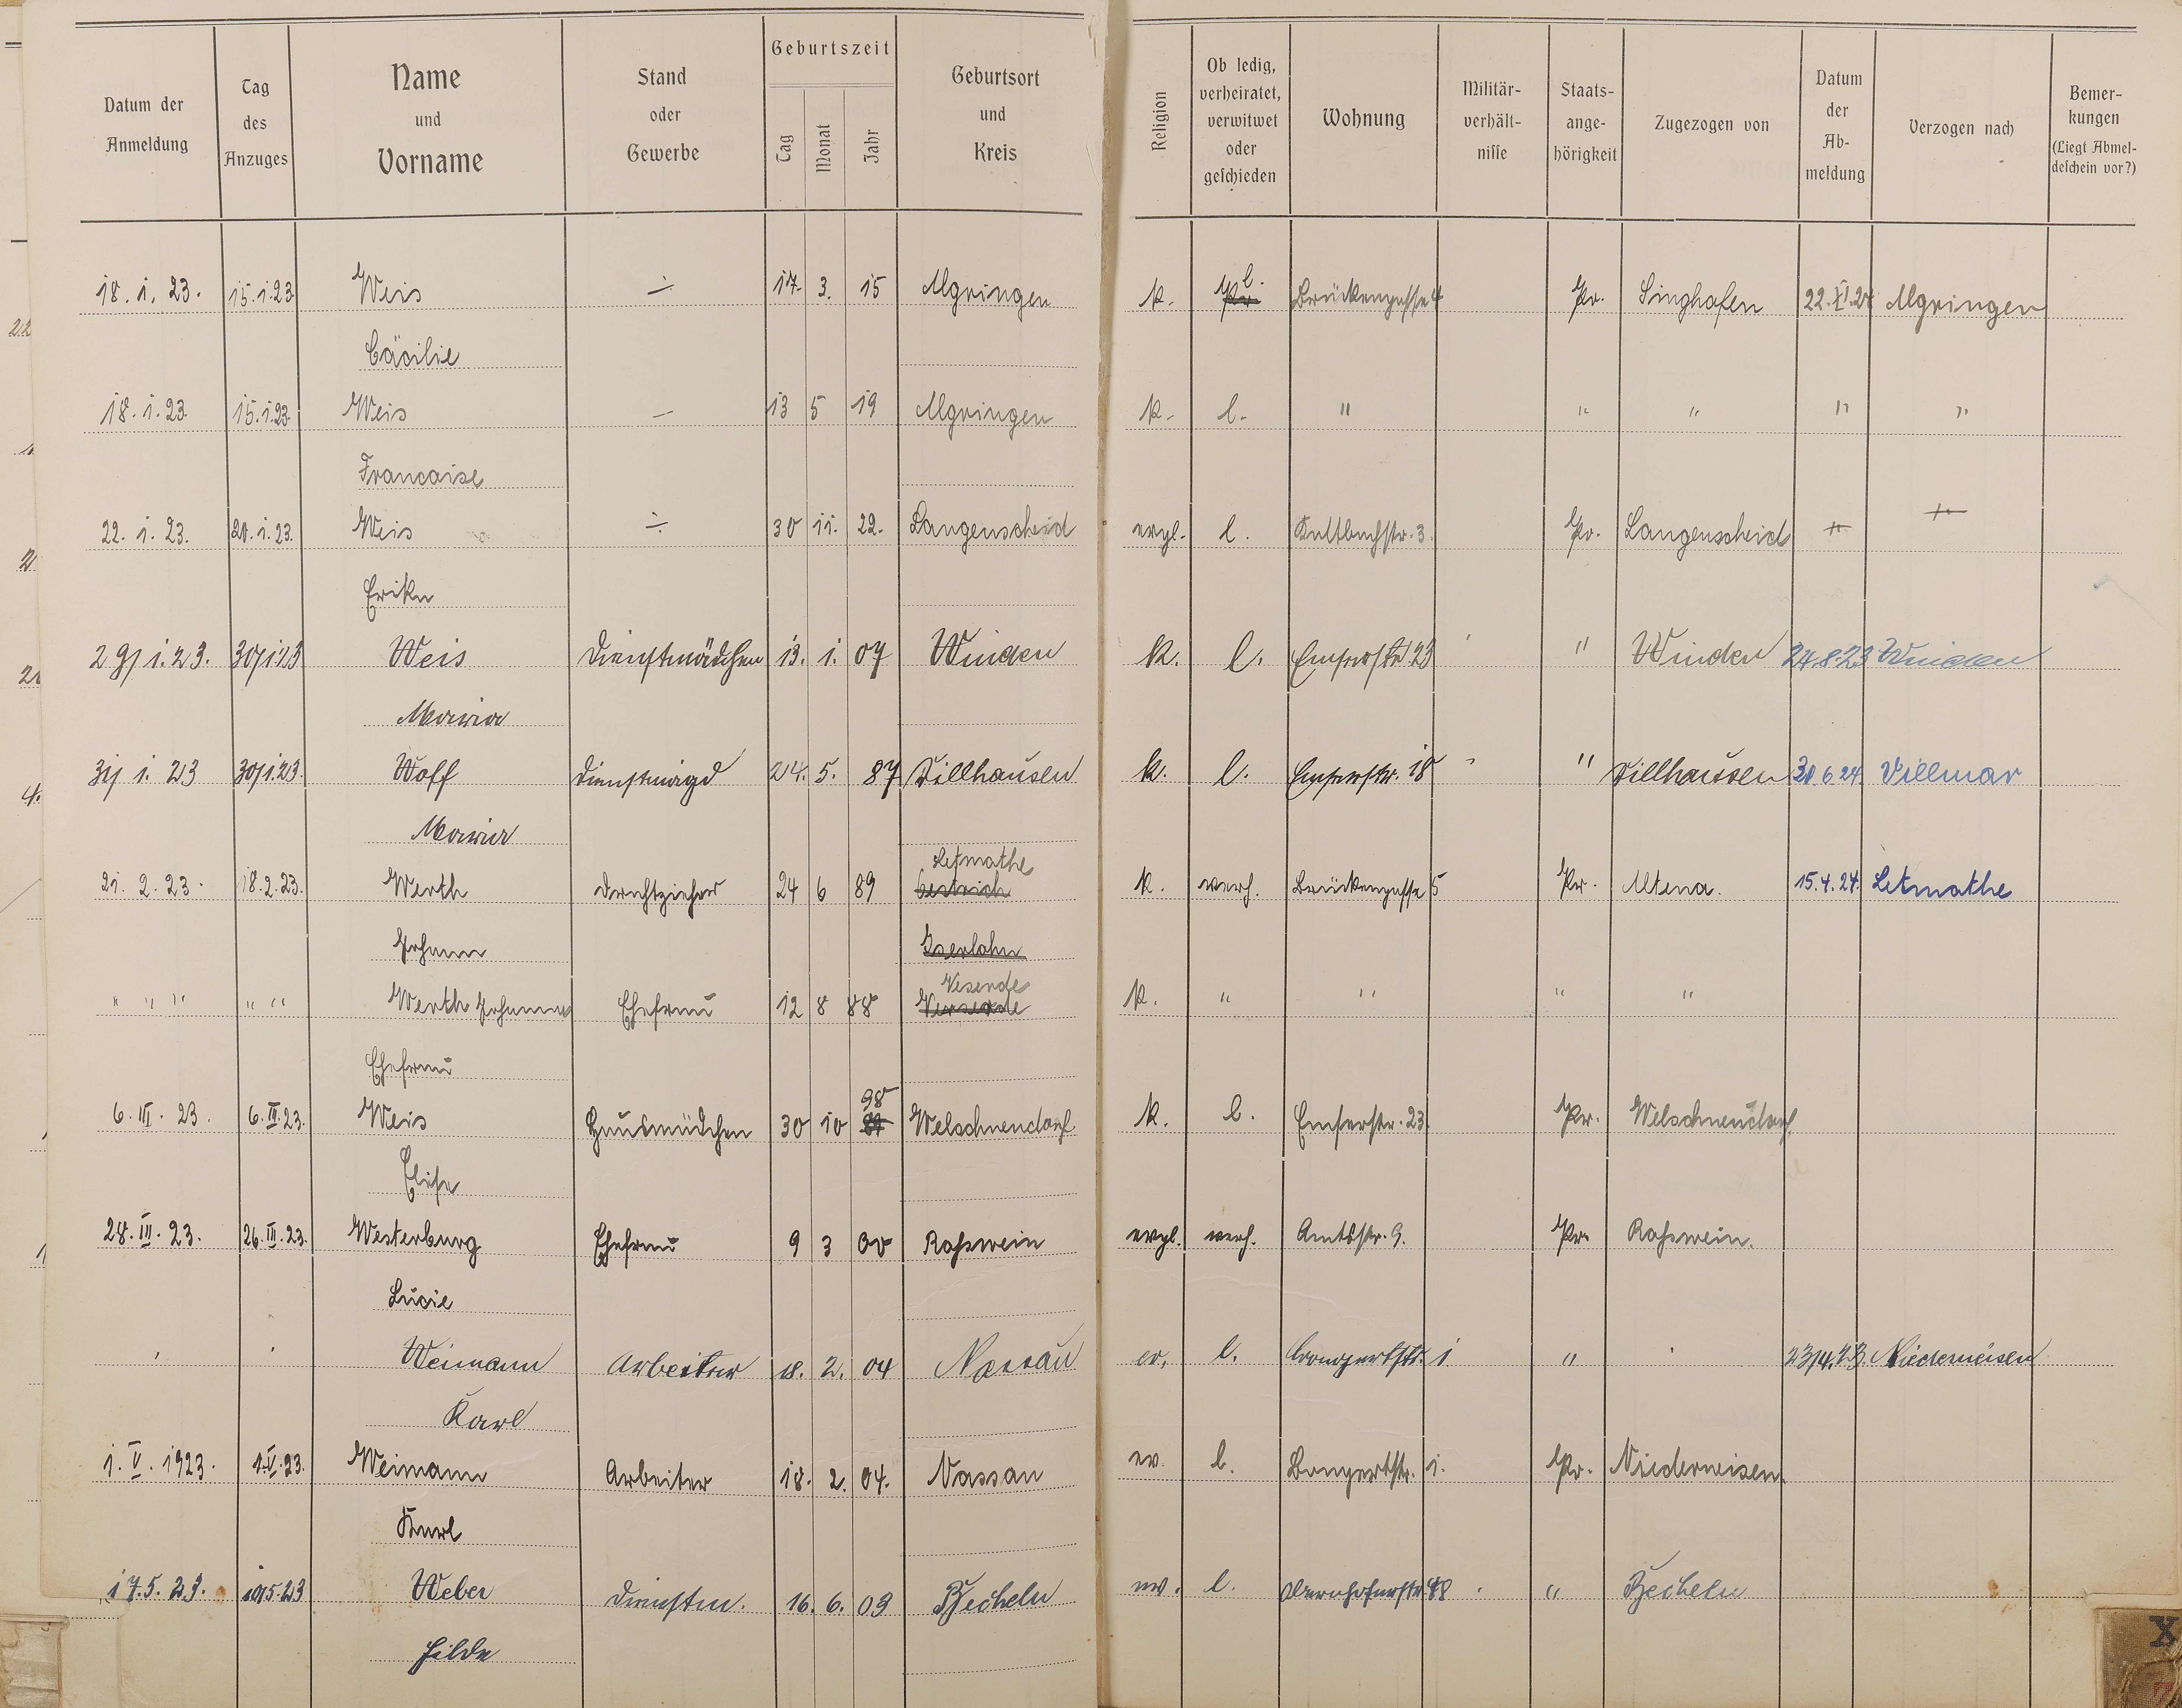 Datum der Anmeldung | Tag des Anzuges | Name und Vorname | Stand oder Gewerbe | Geburtszeit Tag Monat Jahr | Geburtsort und Kreis | Religion | Ob ledig, verheiratet, verwitwet oder geschieden | Wohnung | Militär-verhält-nisse | Staats-ange-hörigkeit | Zugezogen von | Datum der Ab-meldung | Verzogen nach | Bemer-kungen (Liegt Abmel-deschein vor?)
18. 1. 23. 15.1.23. Weis — 17. 3. 15 Algringen k. l. Brückengasse 4 Pr. Singhofen 22.XI.24 Algringen
Cäcilie
18. 1. 23. 15.1.23. Weis — 13 5 19 Algringen k. l. " " " " "
Francaise
22. 1. 23. 20.1.23. Weis — 30 11. 22. Langenscheid evgl. l. Kaltbachstr. 3. Pr. Langenscheid
Erika
29/1.23. 30/1.23 Weis Dienstmädchen 13. 1. 07 Winden k. l. Emserstr 23 " Winden 24.8.23 Winden
Maria
31/1. 23 30/1.23. Woff Dienstmagd 24. 5. 87 Dillhausen k. l. Emserstr. 18 " Dillhausen 30.6.24 Villmar
Maria
Letmathe
21. 2. 23. 18.2.23. Werth Drahtzieher 24 6 89 Oestrich k. verh. Brückengasse 5 Pr. Altena. 15.4.24. Letmathe
Johann Iserlohn
Vesende
" " " " " Werth Johann Ehefrau 12 8 88 k. " " " "
Ehefrau
98
6. III. 23. 6.III.23. Weis Hausmädchen 30 10 Welschneudorf k. l. Emserstr. 23. Pr. Welschneudorf
Elise
28. III. 23. 26.III.23. Westerburg Ehefrau 9 3 00 Roßwein evgl. verh. Amtsstr. 9. Pr. Roßwein.
Lucie
Weimann Arbeiter 18. 2. 04 Nassau ev. l. Bongertstr. 1 " 23/4.23. Niederneisen
Karl
1. V. 1923. 1.V.23. Weimann Arbeiter 18. 2. 04. Nassau ev. l. Bongertstr. 1. Pr. Niederneisen
Karl
17.5. 23. 10/5.23 Weber Dienstm. 16. 6. 09 Becheln ev. l. Obernhoferstr. 48 " Becheln
Hilde